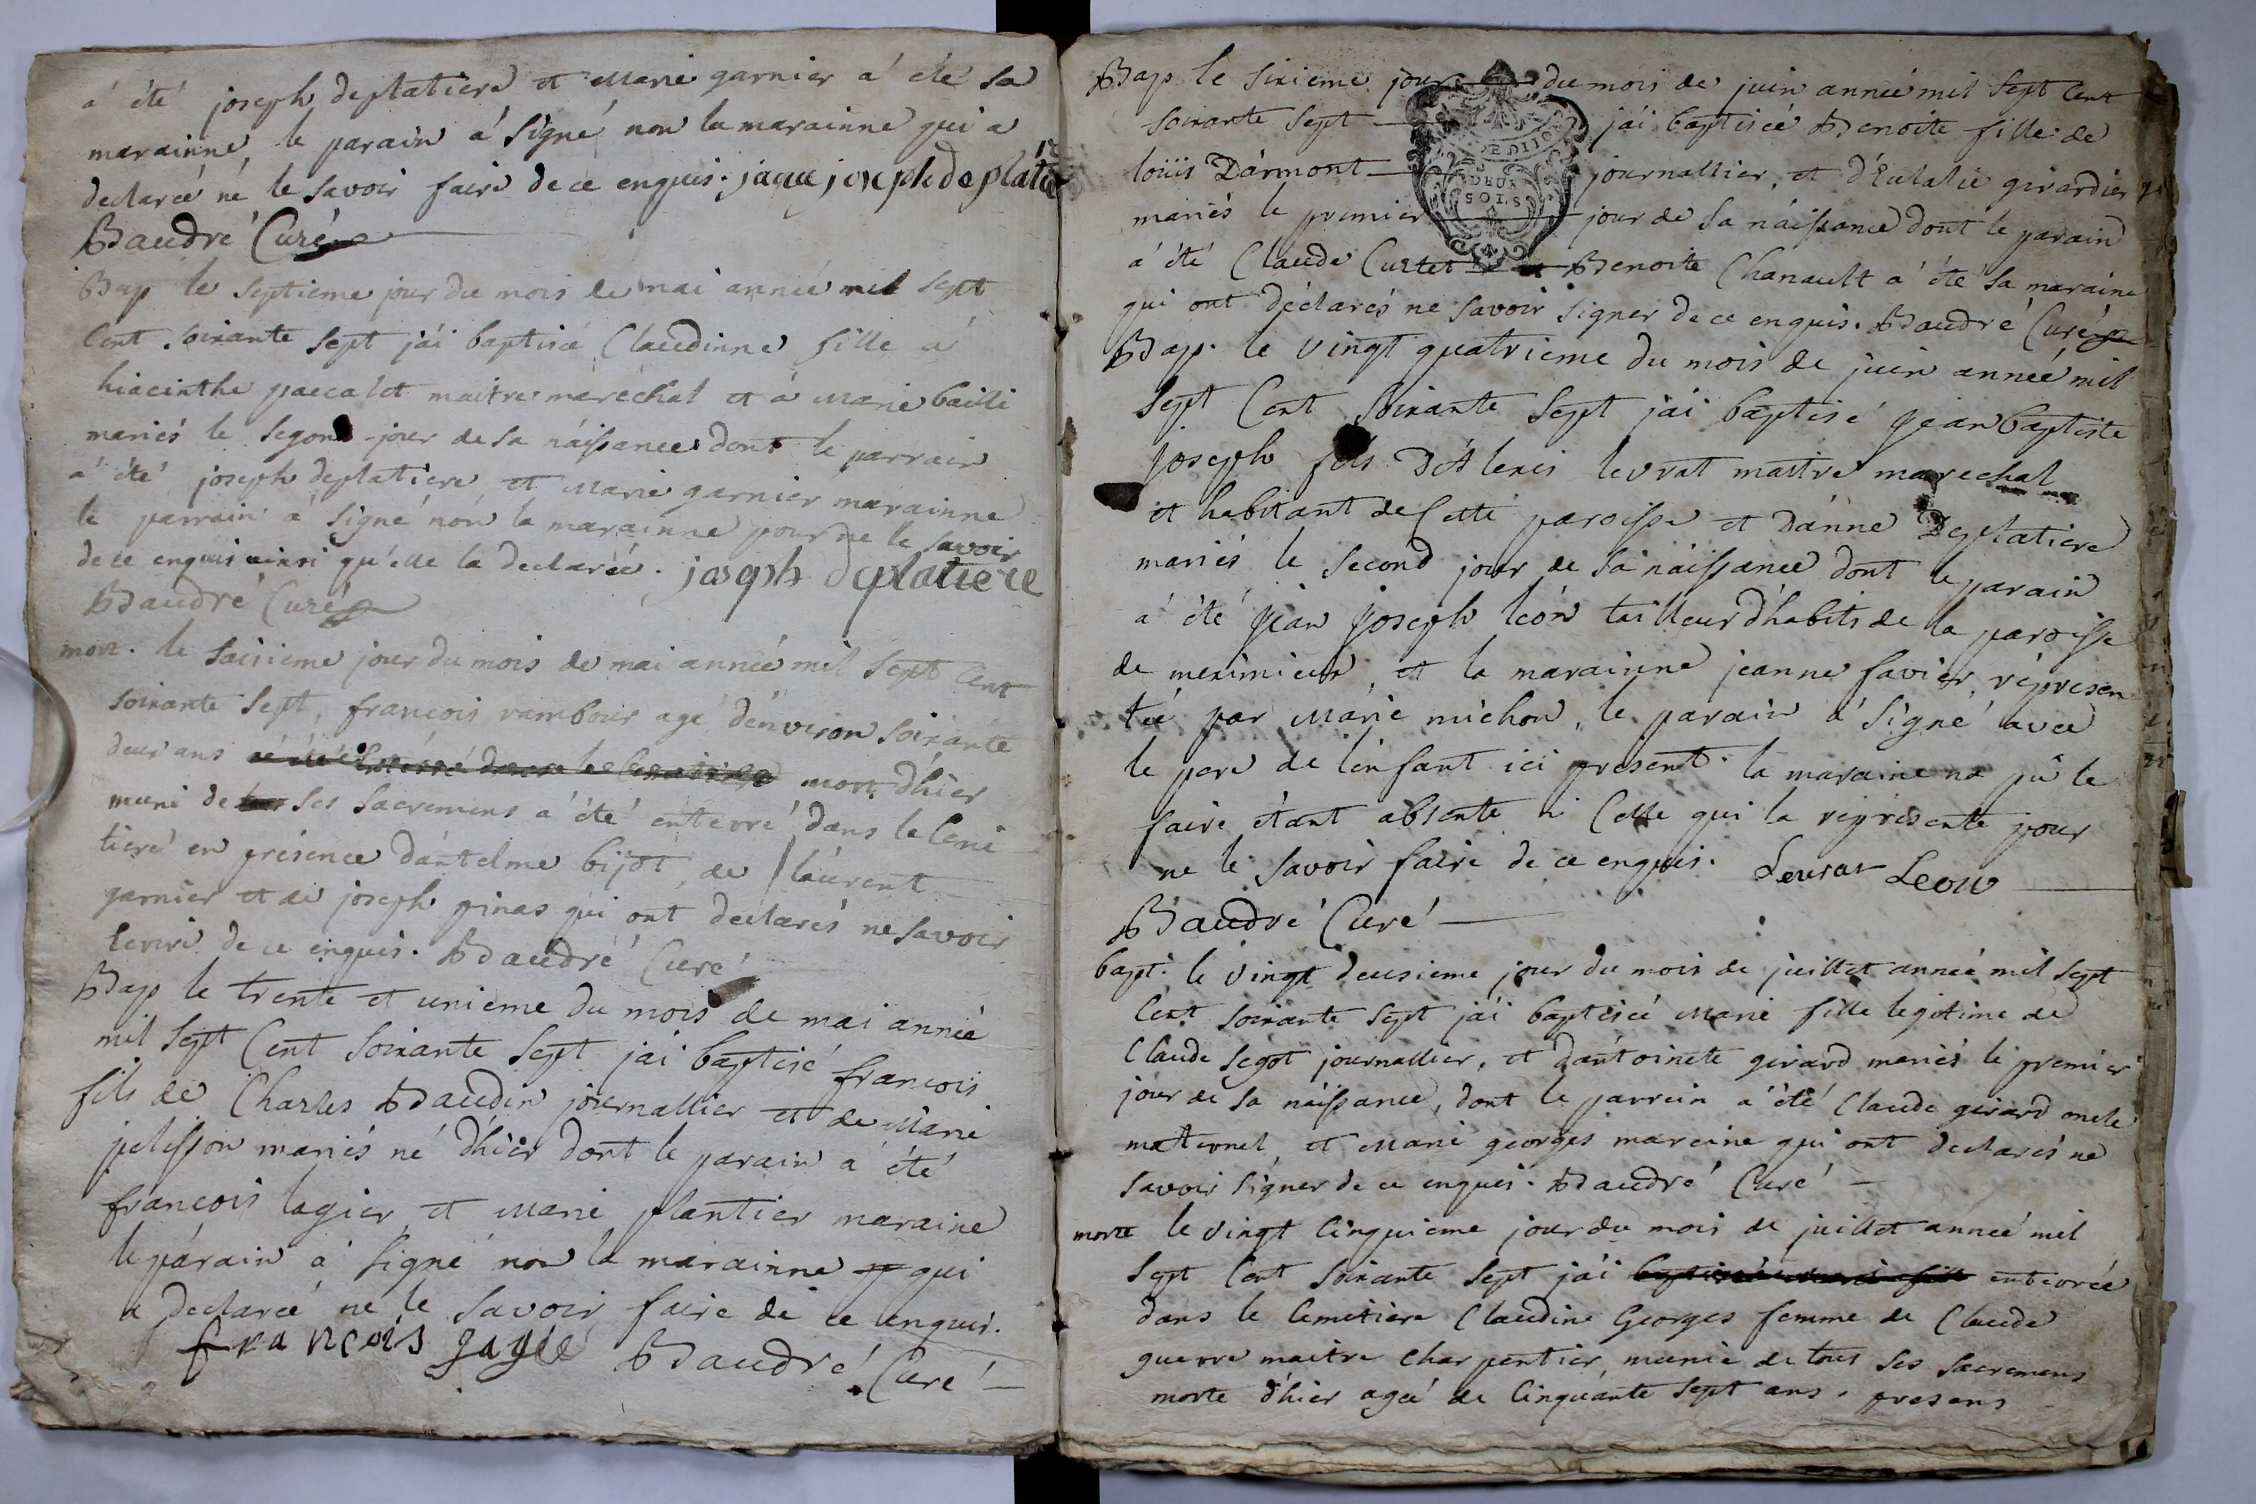 a été joseph deplatiere et Marie garnier a été sa
marainne, le parain a signé non la marainne qui a
declareé né le savoir faire de ce enquis. jaque joseph deplati
Baudré Curé
Bap le septieme jour du mois de mai anneé mil sept
Cent soixante sept j'ai baptiseé Claudinne fille à
hiacinthe pacalet maitre maréchal et à Marie bailli
mariés le segond jour de sa náissance dont le parrain
a été joseph deplatiere et Marie garnier marainne
le parrain a signé non la marainne pour ne le savoir
de ce enquis ainsi qu'elle la declareé. joseph deplatiere
Baudré Curé
mort. le saisieme jour du mois de mai anneé mil sept Cent
soixante sept, francois rambour agé d'environ soixante
deux ans mort d'hier
muni de ses sacremens a été enterré dans le Cemi
tiere en présence d'antelme bijot, de laurent
garnier et de joseph pinas qui ont declarés ne savoir
Ecrire de ce enquis. Baudré Curé
Bap le trente et unieme du mois de mai anneé
mil sept Cent soixante sept jai baptisé francois
fils de Charles Baudin journallier et de Marie
pelisson mariés né d'hier dont le parain a été
francois lagier et Marie plantier maraine
le parain a signé non la marainne qui
a declareé ne le savoir faire de ce enquis.
francois gagie Baudré Curé
Bap le sixieme jour du mois de juin anneé mil sept Cent
soixante sept j'ai baptiseé Benoite fille de
loüis Darmont journallier, et d'Eulalie girardier
mariés le premier jour de sa náissance dont le parain
a été Claude Curtet Benoite Chanault a été sa maraine
qui ont déclarés ne savoir signer de ce enquis. Baudré Curé
DE DIJON
DEUX
SOLS
Bap. le vingt quatrieme du mois de juin anneé mil
sept Cent soixante sept jai baptisé jean baptiste
joseph fils D'Alexis levrat maitre marechal
et habitant de Cette paroisse et d'anne Deplatiere
mariés le second jour de sa naissance dont le parain
a été jean joseph leon tailleur d'habits de la paroisse
de meximieux, et la marainne jeanne favier, répresen
teé par Marie michon, le parain a signé avec
le pere de l'enfant ici present. la maraine na pû le
faire étant absente ni Celle qui la réprésente pour
ne le savoir faire de ce enquis. Levrat Leon
Baudré Curé
bapt. le vingt deusieme jour du mois de juillet anneé mil sept
Cent soixante sept j'ai baptiseé Marie fille legitime de
Claude segot journallier, et d'antoinete girard mariés le premier
jour de sa náissance, dont le parrein a été Claude girard oncle
maternel, et Marie georges mareine qui ont declarés ne
savoir signer de ce enquis. Baudré Curé
morte le vingt Cinquieme jour du mois de juillet anneé mil
sept Cent soixante sept j'ai enterreé
dans le Cemetiere Claudine Georges femme de Claude
guerre maitre Charpentier munie de tous ses sacremens
morte d'hier ageé de Cinquante sept ans. presens